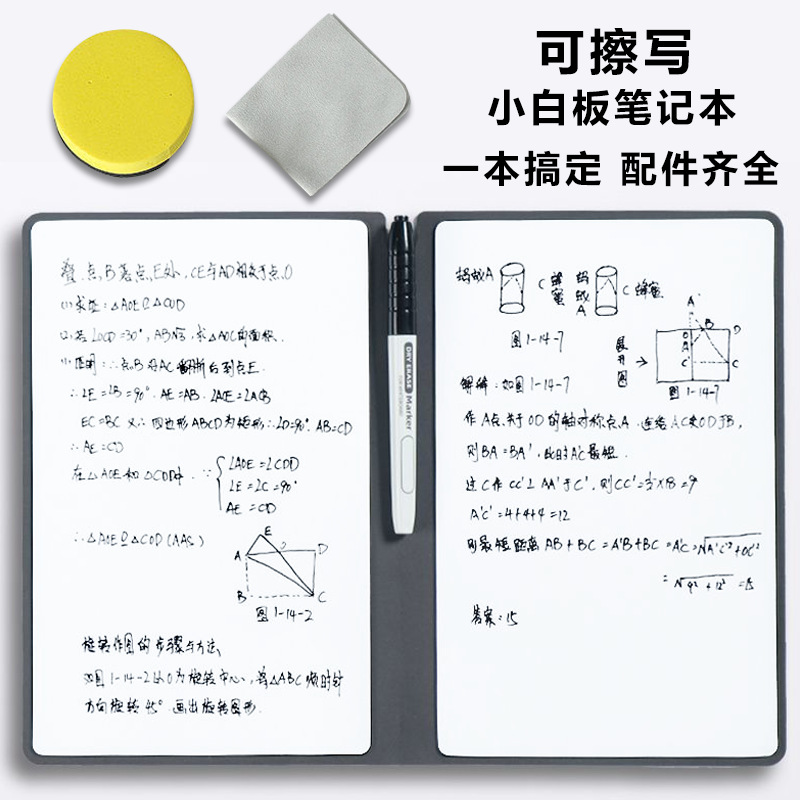 可擦写
小白板笔记本
一本搞定 配件齐全
叠.点B落点E处,CE与AD相交于点O
(1)求证:△AOE≌△COD
(2)若∠OCD=30°,AB=,求△AOC的面积.
证明:∵点B沿AC翻折后到点E.
∴∠E=∠B=90°.AE=AB.∠ACE=∠ACB
EC=BC 又∵四边形ABCD为矩形∴∠D=90°.AB=CD
∴AE=CD
在△AOE和△COD中.∵
∠AOE=∠COD
∠E=∠C=90°
AE=CD
∴△AOE≌△COD(AAS)
E
A
O
D
B
C
图1-14-2
旋转作图的步骤与方法
如图1-14-2以O为旋转中心,将△ABC顺时针
方向旋转45°画出旋转图形.
DRY ERASE Marker
蚂蚁A
C蜂蜜
蚂蚁A
C蜂蜜
图1-14-7
展开图
A'
B
D
A
C'
C
图1-14-7
解释:如图1-14-7
作A点关于OD的轴对称点A.连结A'C交OD于B,
则BA=BA',此时A'C最短.
过C作CC'⊥AA'于C',则CC'=½×18=9
A'C'=4+4+4=12
则最短距离AB+BC=A'B+BC=A'C=√A'C'²+CC'²
=√9²+12²=15
答案:15